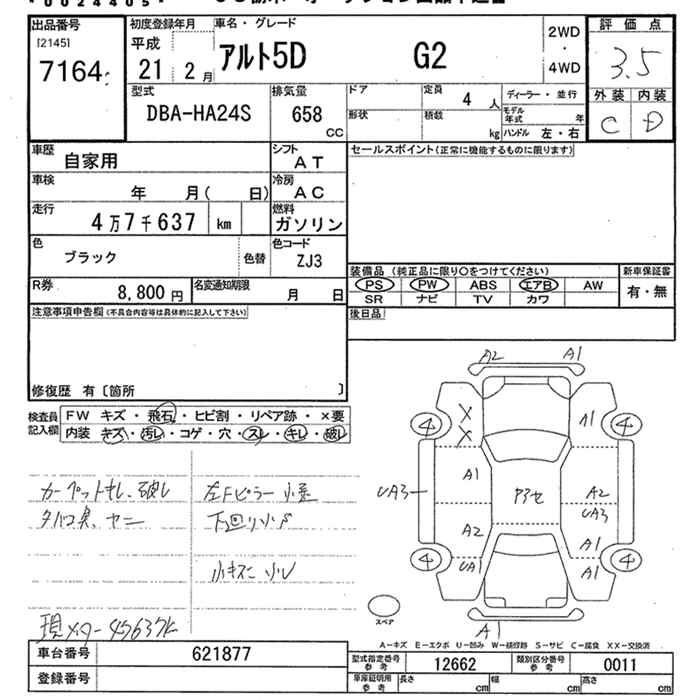 *00024405*
出品番号 初度登録年月 車名・グレード 2WD 評価点
[2145] 平成 ・
7164 21年 2月 アルト5D G2 4WD 3.5
型式 排気量 ドア 定員 4人 ディーラー・並行 外装 内装
DBA-HA24S 658 CC 形状 積載 kg モデル年式 年 C D
ハンドル 左・右
車歴 自家用 シフト AT セールスポイント(正常に機能するものに限ります)
車検 年 月( 日) 冷房 AC
走行 4万7千637 km 燃料 ガソリン
色 ブラック 色替 色コード ZJ3
装備品 (純正品に限り○をつけてください) 新車保証書
R券 8,800円 名変通知期限 月 日 PS PW ABS エアB AW 有・無
SR ナビ TV カワ
注意事項申告欄(不具合内容等は具体的に記入して下さい) 後日品
修復歴 有〔箇所 〕
検査員記入欄 FW キズ・飛石・ヒビ割・リペア跡・×要
内装 キズ・汚レ・コゲ・穴・スレ・キレ・破レ
カーペットキレ、破レ 左Fピラー小キズ
タバコ臭、ヤニ 下回り小サビ
小キズ 小U
現メーター 47637k
A2 A1
4 X X A1 4
A1 UA3 Pマセ A2
UA3
A2 A1
4 UA1 A1 4
スペア A1
A-キズ E-エクボ U-凹み W-補修跡 S-サビ C-腐食 XX-交換済
車台番号 621877 型式指定番号 参考 12662 類別区分番号 参考 0011
登録番号 車庫証明用 参考 長さ cm 幅 cm 高さ cm